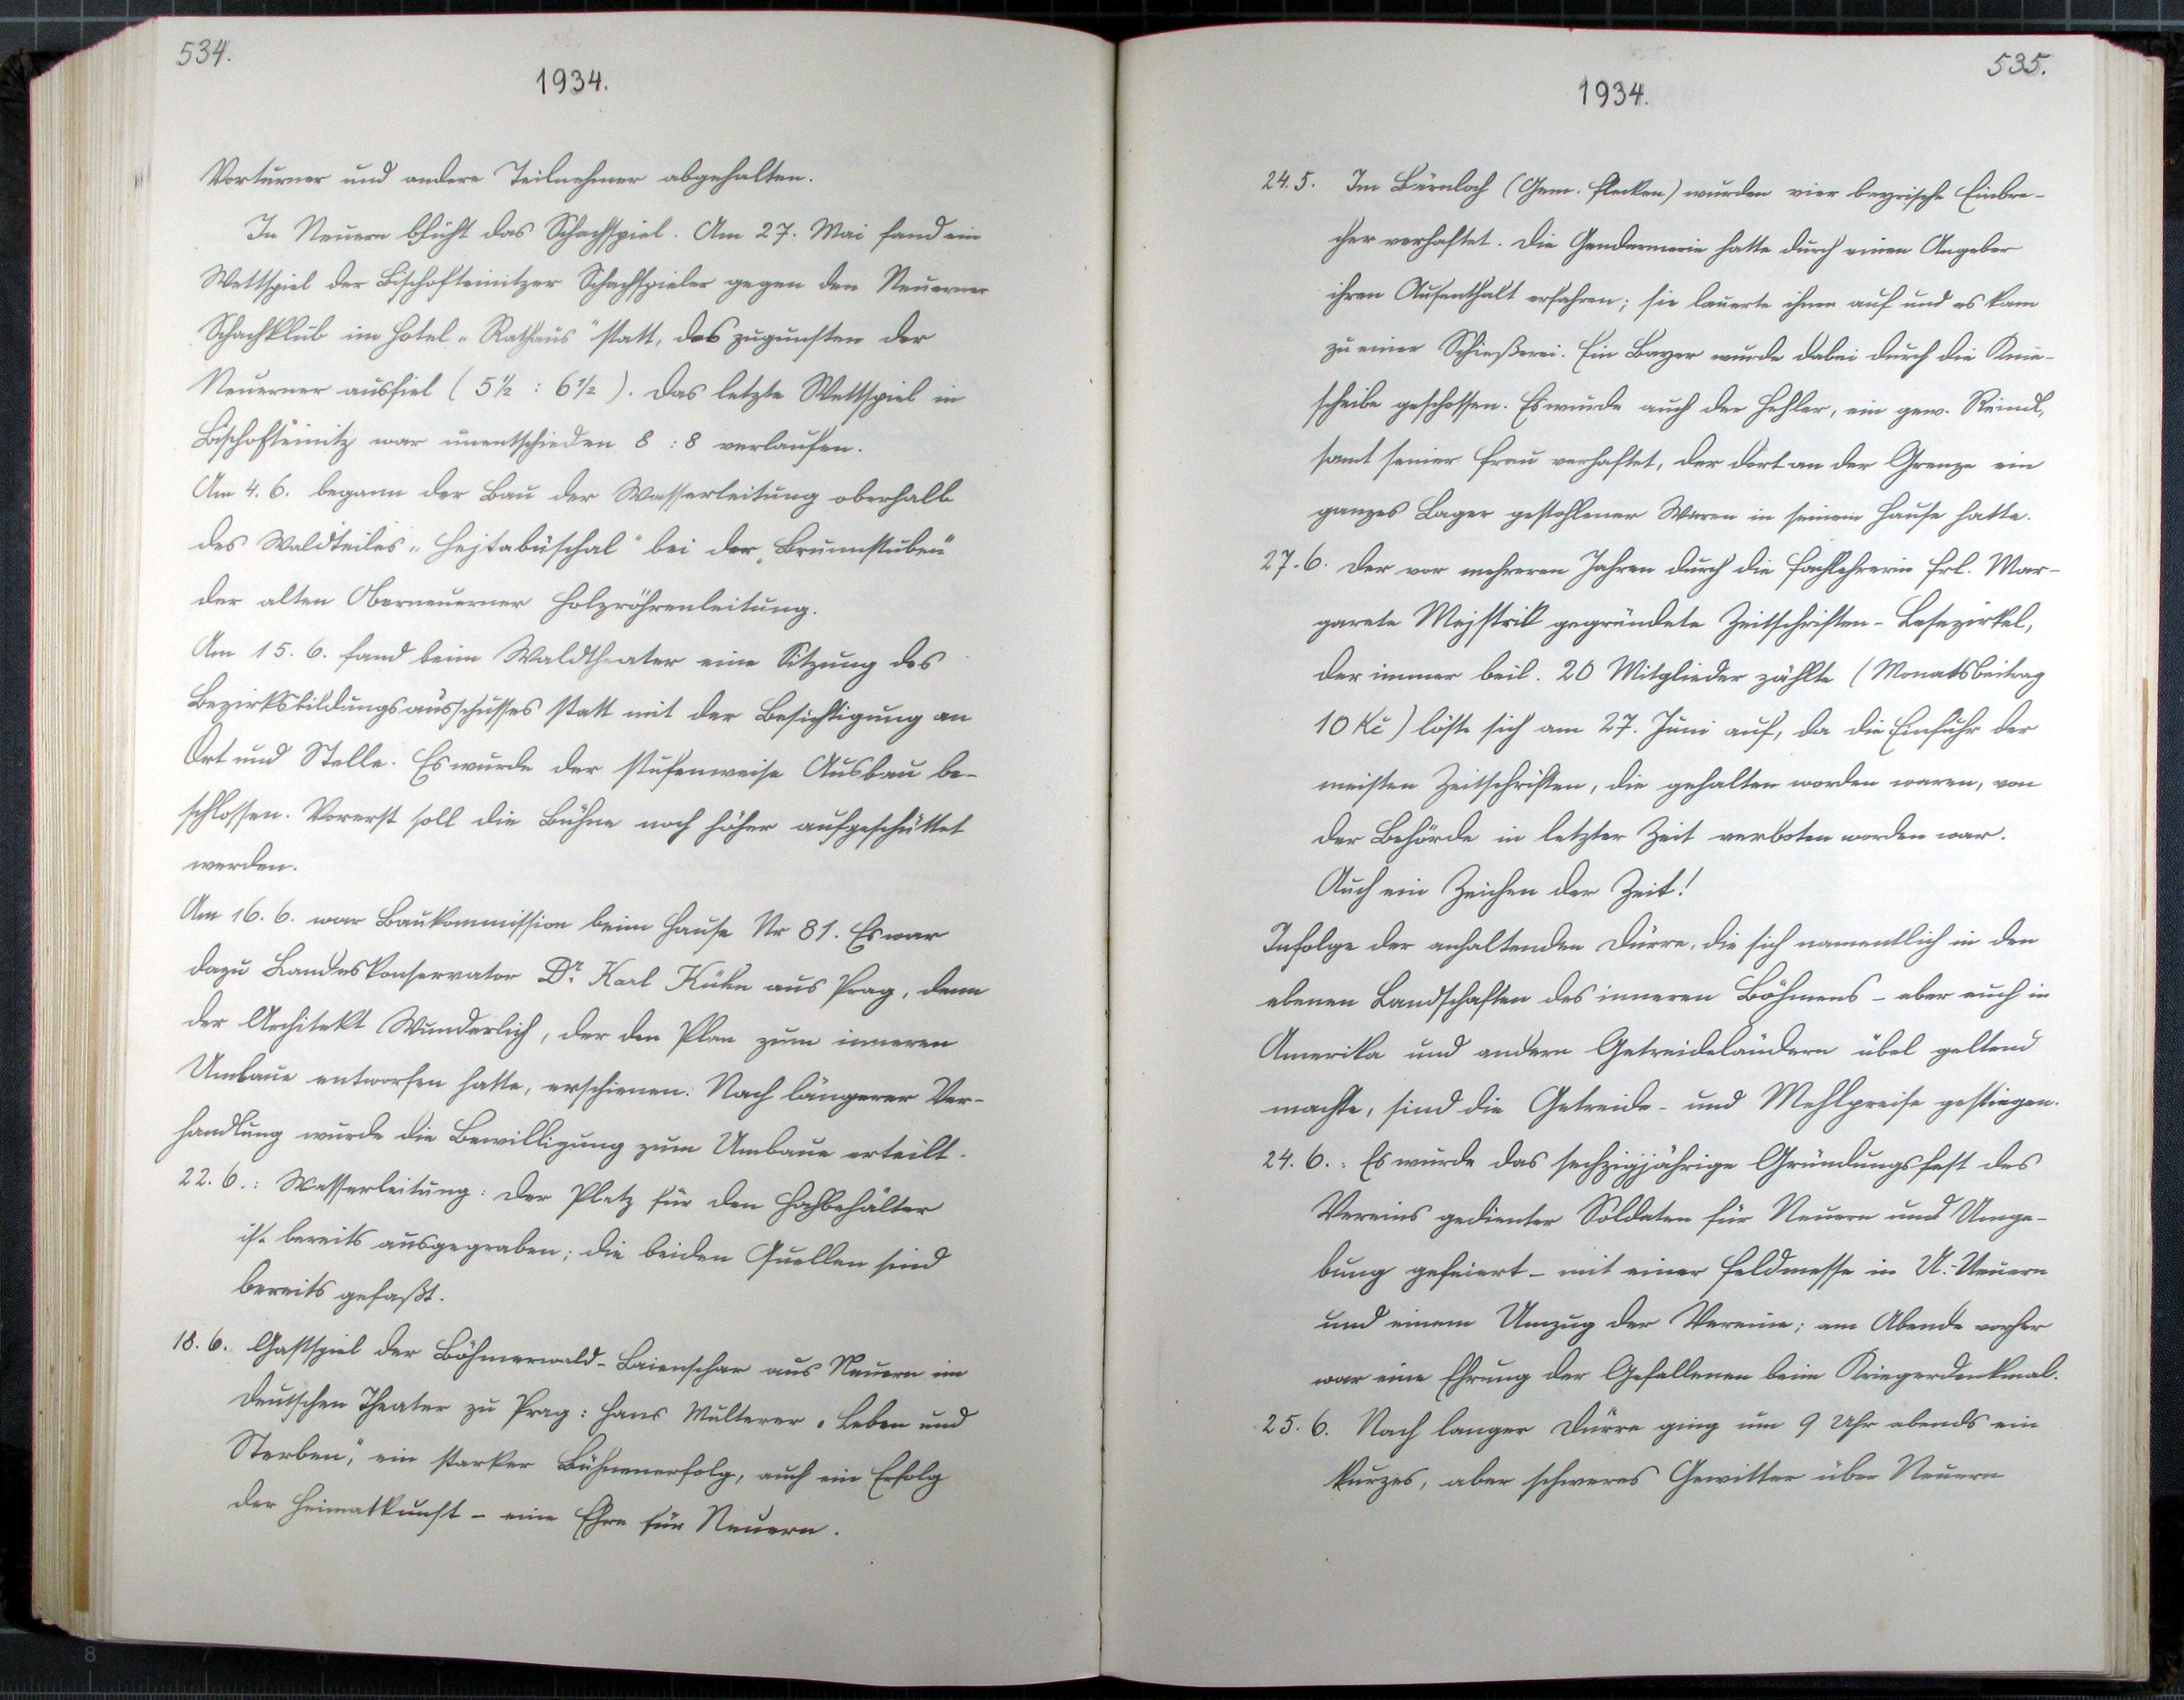 534.
1934.
Vorturner und andere Teilnehmer abgehalten.
In Neuern blüht das Schachspiel. Am 27. Mai fand ein
Wettspiel der Bischofteinitzer Schachspieler gegen den Neuerner
Schachklub im Hotel „Rathaus" statt, das zugunsten der
Neuerner ausfiel (5½ : 6½). Das letzte Wettspiel in
Bischofteinitz war unentschieden 8 : 8 verlaufen.
Am 4. 6. begann der Bau der Wasserleitung oberhalb
des Waldteiles „Hejtabüschal" bei der „Brunnstuben"
der alten Oberneuerner Holzröhrenleitung.
Am 15. 6. fand beim Waldtheater eine Sitzung des
Bezirksbildungsausschusses statt mit der Besichtigung an
Ort und Stelle. Es wurde der stufenweise Ausbau be-
schlossen. Vorerst soll die Bühne noch höher aufgeschüttet
werden.
Am 16. 6. war Baukommission beim Hause Nr 81. Es war
dazu Landeskonservator Dr. Karl Kühn aus Prag, denn
der Architekt Wunderlich, der den Plan zum inneren
Umbaue entworfen hatte, erschienen. Nach längerer Ver-
handlung wurde die Bewilligung zum Umbaue erteilt.
22. 6.: Wasserleitung: Der Platz für den Hochbehälter
ist bereits ausgegraben; die beiden Quellen sind
bereits gefaßt.
18. 6. Gastspiel der Böhmerwald-Laienschar aus Neuern im
Deutschen Theater zu Prag: Hans Multerer „Leben und
Sterben", ein starker Bühnenerfolg, auch ein Erfolg
der Heimatkunst - eine Ehre für Neuern.
535.
1934.
24. 5. Im Bärnloch (Gem. Flecken) wurden vier bayrische Einbre-
cher verhaftet. Die Gendarmerie hatte durch einen Angeber
ihren Aufenthalt erfahren; sie lauerte ihnen auf und es kam
zu einer Schießerei. Ein Bayer wurde dabei durch die Knie-
scheibe geschossen. Es wurde auch der Hehler, ein gew. Reindl,
samt seiner Frau verhaftet, der dort an der Grenze ein
ganzes Lager gestohlener Waren in seinem Hause hatte.
27. 6. Der vor mehreren Jahren durch die Fachlehrerin Frl. Mar-
garete Mejstrik gegründete Zeitschriften-Lesezirkel,
der immer beil. 20 Mitglieder zählte (Monatsbeitrag
10 Kč) löste sich am 27. Juni auf, da die Einfuhr der
meisten Zeitschriften, die gehalten worden waren, von
der Behörde in letzter Zeit verboten worden war.
Auch ein Zeichen der Zeit!
Infolge der anhaltenden Dürre, die sich namentlich in den
ebenen Landschaften des inneren Böhmens - aber auch in
Amerika und andern Getreideländern übel geltend
machte, sind die Getreide- und Mehlpreise gestiegen.
24. 6.: Es wurde das sechzigjährige Gründungsfest des
Vereins gedienter Soldaten für Neuern und Umge-
bung gefeiert - mit einer Feldmesse in U.-Neuern
und einem Umzug der Vereine; am Abende vorher
war eine Ehrung der Gefallenen beim Kriegerdenkmal.
25. 6. Nach langer Dürre ging um 9 Uhr abends ein
kurzes, aber schweres Gewitter über Neuern
8